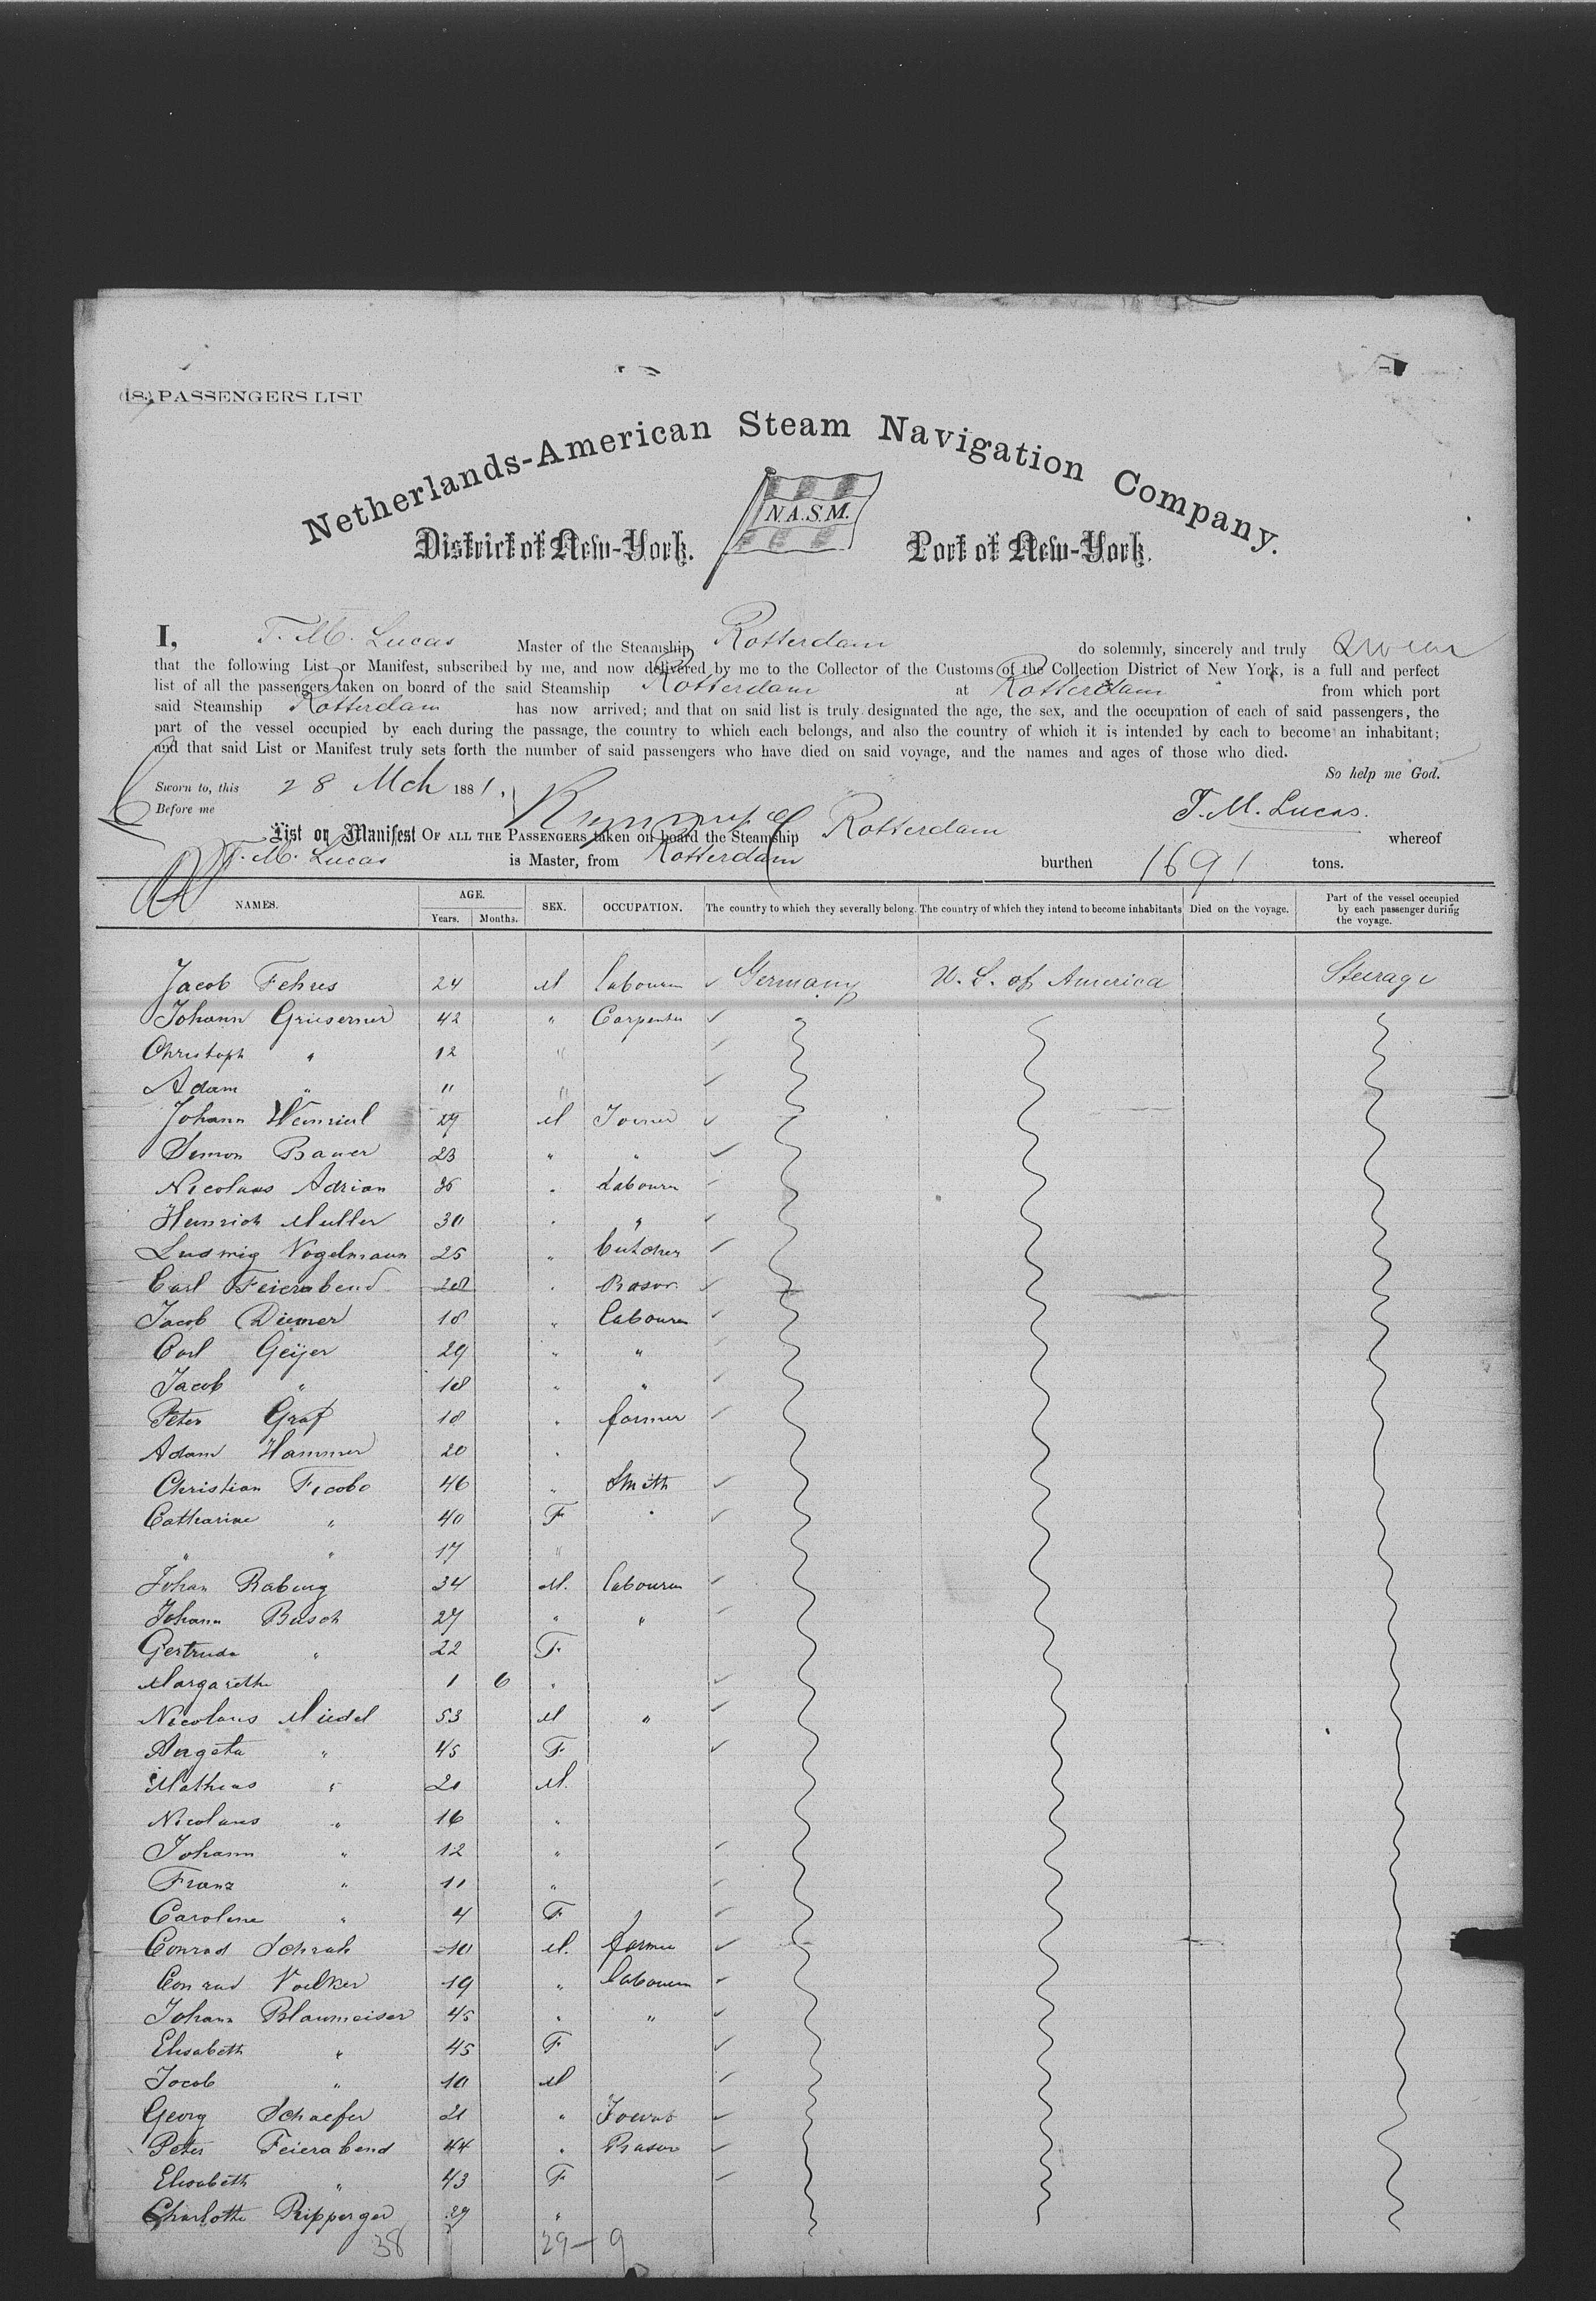 (18) PASSENGERS LIST
Netherlands-American Steam Navigation Company.
N.A.S.M.
District of New-York. Port of New-York.
I, T. M. Lucas Master of the Steamship Rotterdam do solemnly, sincerely and truly swear
that the following List or Manifest, subscribed by me, and now delivered by me to the Collector of the Customs of the Collection District of New York, is a full and perfect
list of all the passengers taken on board of the said Steamship Rotterdam at Rotterdam from which port
said Steamship Rotterdam has now arrived; and that on said list is truly designated the age, the sex, and the occupation of each of said passengers, the
part of the vessel occupied by each during the passage, the country to which each belongs, and also the country of which it is intended by each to become an inhabitant;
and that said List or Manifest truly sets forth the number of said passengers who have died on said voyage, and the names and ages of those who died.
So help me God.
Sworn to, this 28 Mch 1881.
Before me
T. M. Lucas.
List or Manifest OF ALL THE PASSENGERS taken on board the Steamship Rotterdam whereof
T. M. Lucas is Master, from Rotterdam burthen 1691 tons.
NAMES. AGE. Years. Months. SEX. OCCUPATION. The country to which they severally belong. The country of which they intend to become inhabitants Died on the voyage. Part of the vessel occupied by each passenger during the voyage.
Jacob Fehres 24 M Labourer Germany U. S. of America Steerage
Johann Grieserner 42 " Carpenter
Christoph " 12 "
Adam " 11 "
Johann 29 M Joiner
Simon Bauer 23 " "
Nicolaus Adrian 36 " Labourer
Heinrich Muller 30 " "
Ludwig Vogelmann 25 " Butcher
Carl Feierabend 28 "
Jacob Diemer 18 " Labourer
Carl Geijer 29 " "
Jacob " 18 " "
Peter Graf 18 " farmer
Adam Hammer 20 "
Christian 46 " Smith
Catharine " 40 F "
" " 17 "
Johan Raburg 34 M. Labourer
Johann Busch 27 " "
Gertruda " 22 F
Margarethe 1 6 "
Nicolaus Miedel 53 M "
Agata " 45 F
Mathias " 20 M.
Nicolaus " 16 "
Johann " 12 "
Franz " 11 "
Caroline " 4 F
Conrad Schrah 40 M. farmer
Conrad Voelker 19 " Labourer
Johann Blaumeiser 45 " "
Elisabeth " 45 F
Jacob " 10 M
Georg Schaefer 21 "
Peter Feierabend 44 "
Elisabeth " 43 F
Charlotte Ripperger 29 "
38 29 - 9